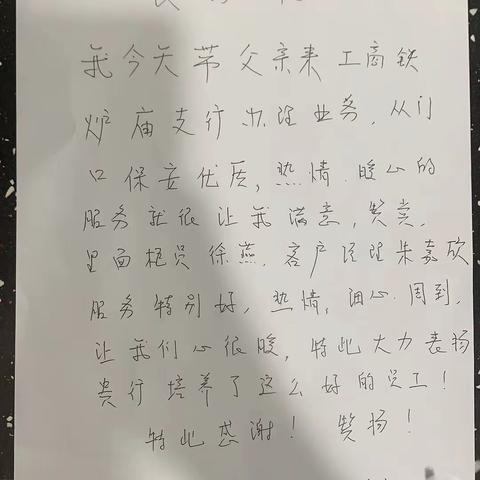 我今天带父亲来工商铁
炉庙支行办理业务,从门
口保安优质,热情.暖心的
服务就很让我满意,赞赏.
里面柜员徐燕.客户经理朱嘉欣
服务特别好,热情,细心.周到.
让我们心很暖,特此大力表扬
贵行培养了这么好的员工!
特此感谢! 赞扬!